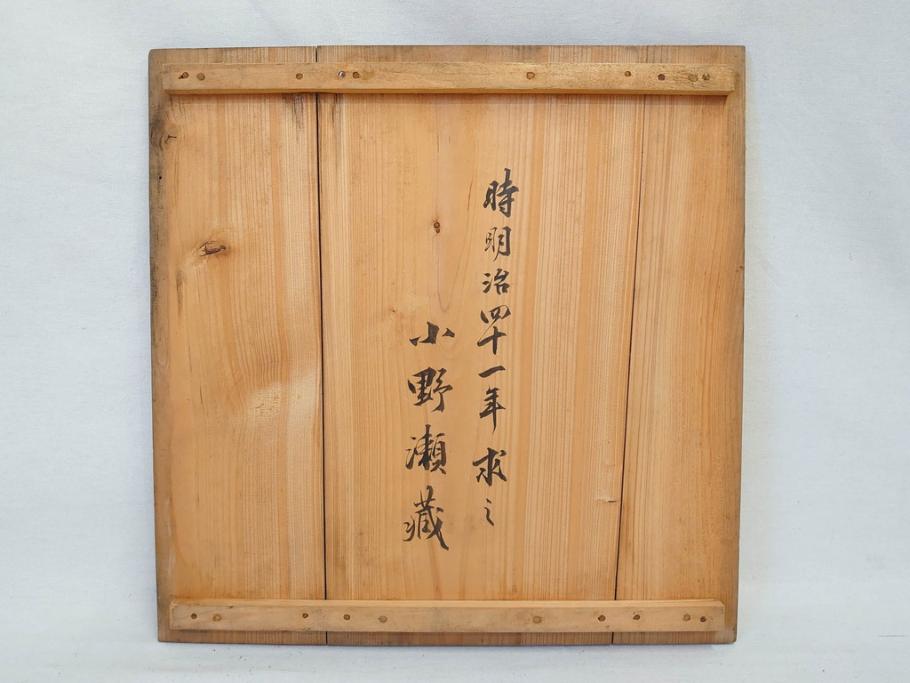 時明治四十一年求之
小野瀬藏